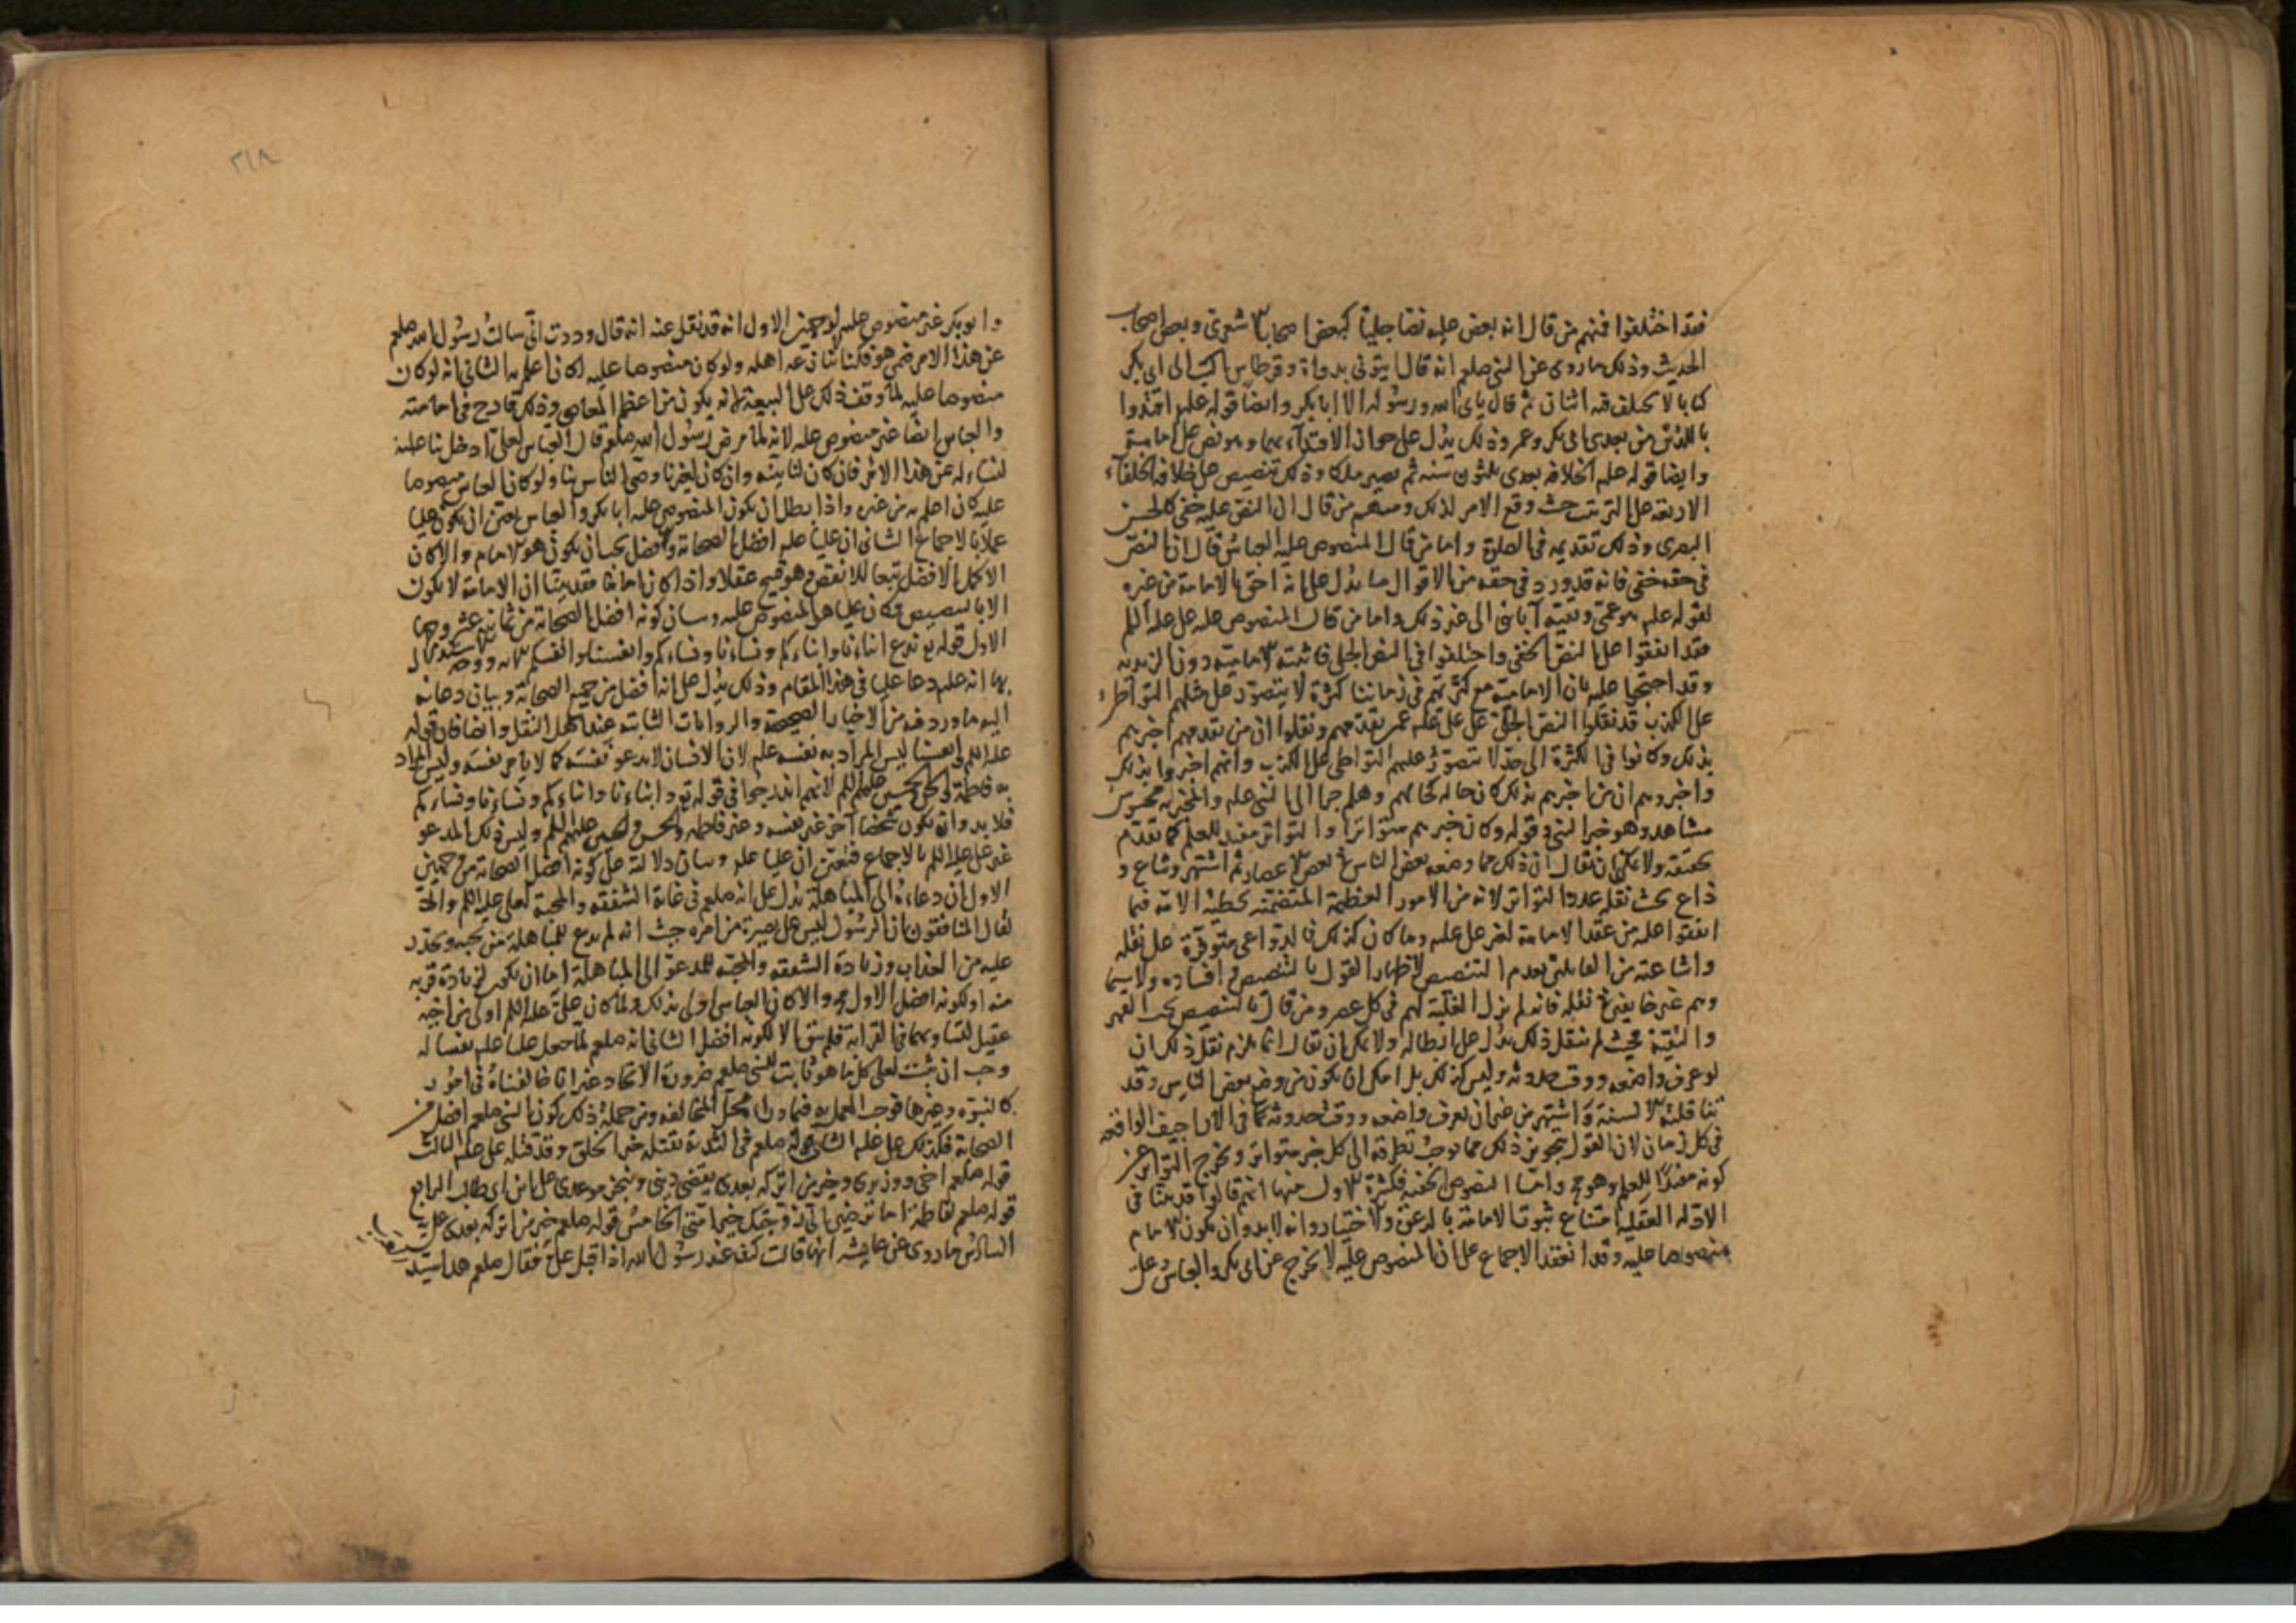 فقد اختلفوا فمنهم من قال انه بعض عليه نصا جليا كبعض اصحاب الاشعرى وبعض اصحاب
الحديث وذلك ما روى عن النبى صلعم انه قال ايتونى بدواة وقرطاس اكتب الى ابى بكر
كتابا لا يختلف فيه اثنان ثم قال يابى الله ورسوله الا ابا بكر وايضا قوله عليه اقتدوا
باللذين من بعدى ابى بكر وعمر وذلك يدل على جواز الاقتداء بهما وهو نص على امامته
وايضا قوله عليه الخلافة بعدى ثلثون سنه ثم يصير ملكا وذلك تنصيص على خلافة الخلفاء
الاربعة على الترتيب حيث وقع الامر لذلك ومنهم من قال ان النص عليه خفى كالحسن
البصرى وذلك تقديمه فى الصلوة واما من قال المنصوص عليه العباس قال ان النص
فى حقه خفى فانه قد ورد فى حقه من الاقوال ما يدل على انه احق بالامامة من غيره
لقوله عليه هو عمى وبقية آبائى الى غير ذلك واما من قال المنصوص عليه على عليه السلم
فقد اتفقوا على النص الخفى واختلفوا فى النص الجلى فاثبته الامامية دون الزيدية
وقد احتجوا عليه بان الامامية مع كثرتهم فى زماننا كثرة لا يتصور على مثلهم التواطىء
على الكذب قد نقلوا النص الجلى على على عليه عمن تقدمهم ونقلوا ان من تقدمهم اخبرهم
بذلك وكانوا فى الكثرة الى حد لا يتصور عليهم التواطى على الكذب وانهم اخبروا بذلك
واخبروهم ان من اخبرهم بذلك كان حاله كحالهم وهلم جرا الى النبى عليه والمخبر به محسوس
مشاهد وهو خبر النبى وقوله وكان خبرهم متواترا والتواتر مفيد للعلم كما تقدم
تحقيقه ولا يمكن ان يقال ان ذلك مما وضعه بعض الناس فى بعض الاعصار ثم اشتهر وشاع و
ذاع بحيث نقله عدد التواتر لانه من الامور العظيمة المتضمنة تخطئة الامة فيما
اتفقوا عليه من عقد الامامة لغير على عليه وما كان كذلك فالدواعى متوفرة على نقله
واشاعته من القائلين بعدم التنصيص لاظهار القول بالتنصيص وافساده ولا سيما
وهم غير خايفين فى نقله فانه لم يزل الغلبة لهم فى كل عصر ومن قال بالتنصيص تحت القهر
والتقية فحيث لم ينقل ذلك يدل على ابطاله ولا يمكن ان يقال انما يلزم نقل ذلك ان
لو عرف واضعه ووقت حدوثه وليس كذلك بل امكن ان يكون من وضع بعض الناس وقد
تناقلته الالسنة واشتهر من غير ان يعرف واضعه ووقت حدوثه كما فى الاراجيف الواقعة
فى كل زمان لان القول بتجويز ذلك مما يوجب تطرقه الى كل خبر متواتر ويخرج التواتر عن
كونه مفيدا للعلم وهو مح واما النصوص الخفية فكثيرة الاول منها انهم قالوا قد بينا فى
الادلة العقلية امتناع ثبوت الامامة بالدعوة والاختيار وانه لا بد وان يكون الامام
منصوصا عليه وقد انعقد الاجماع على ان المنصوص عليه لا يخرج عن ابى بكر والعباس وعلى
٢١٨
وابو بكر غير منصوص عليه لوجهين الاول انه قد نقل عنه انه قال وددت انى سالت رسول الله صلعم
عن هذا الامر فيمن هو فكنا لا ننازعه اهله ولو كان منصوصا عليه لكان اعلم به الثانى انه لو كان
منصوصا عليه لما وقف ذلك على البيعة لانه يكون من اعظم المعاصى وذلك قادح فى امامته
والعباس ايضا غير منصوص عليه لانه لما مرض رسول الله صلعم قال العباس لعلى ادخل بنا عليه
لنساله عن هذا الامر فان كان لنا بينه وان كان لغيرنا وصى الناس بنا ولو كان العباس منصوصا
عليه كان اعلم به من غيره واذا بطل ان يكون المنصوص عليه ابا بكر والعباس تعين ان يكون عليا
عملا بالاجماع الثانى ان عليا عليه افضل الصحابة والافضل يجب ان يكون هو الامام والا كان
الاكمل الافضل تبعا للانقص وهو قبيح عقلا واذا كان اماما فقد بينا ان الامامة لا يكون
الا بالتنصيص فكان على هو المنصوص عليه وبيان كونه افضل الصحابة من ثمانية عشر وجها
الاول قوله تع ندع ابناءنا وابناءكم ونساءنا ونساءكم وانفسنا وانفسكم الاية ووجه الاستدلال
بها انه عليه دعا عليا فى هذا المقام وذلك يدل على انه افضل من جميع الصحابة وبيان دعائه
اليه ما ورد فيه من الاخبار الصحيحة والروايات الثابته عند اهل النقل وايضا فان قوله
عليه السلم وانفسنا ليس المراد به نفسه عليه لان الانسان لا يدعو نفسه كما لا يامر نفسه وليس المراد
به فاطمة والحسن والحسين عليهم السلم لانهم اندرجوا فى قوله تع ابناءنا وابناءكم ونساءنا ونساءكم
فلا بد وان يكون شخصا آخر غير نفسه وغير فاطمة والحسن والحسين عليهم السلم وليس ذلك المدعو
غير على عليه السلم بالاجماع فتعين ان عليا عليه وبيان دلالته على كونه افضل الصحابة من وجهين
الاول ان دعاءه الى المباهلة يدل على انه صلعم فى غاية الشفقة والمحبة لعلى عليه السلم والا
لقال المنافقون ان الرسول ليس على بصيرة من امره حيث انه لم يدع للمباهلة من يحبه ويحذر
عليه من العذاب وزيادة الشفقة والمحبة للمدعو الى المباهلة اما ان يكون لزيادة قربه
منه او لكونه افضل الاول مح والا كان العباس اولى بذلك ولما كان على عليه السلم اولى من اخيه
عقيل لتساويهما فى القرابة فلم يبق الا لكونه افضل الثانى انه صلعم لما جعل عليا عليه نفسا له
وجب ان يثبت لعلى كل ما هو ثابت للنبى صلعم ضرورة الاتحاد غير انا خالفناه فى امور
كالنبوة وغيرها فوجب العمل به فيما وراء محل المخالفة ومن جملة ذلك كون النبى صلعم افضل من
الصحابة فكذلك على عليه الثانى قوله صلعم فى الثدية يقتله خير الخلق وقد قتله على عليه الثالث
قوله صلعم اخى ووزيرى وخير من اتركه بعدى يقضى دينى وينجز موعدى على ابن ابى طالب الرابع
قوله صلعم لفاطمة اما ترضين انى زوجتك خير امتى الخامس قوله صلعم خير من اتركه بعدى على
السادس ما روى عن عايشه انها قالت كنت عند رسول الله اذ اقبل على فقال صلعم هذا سيد